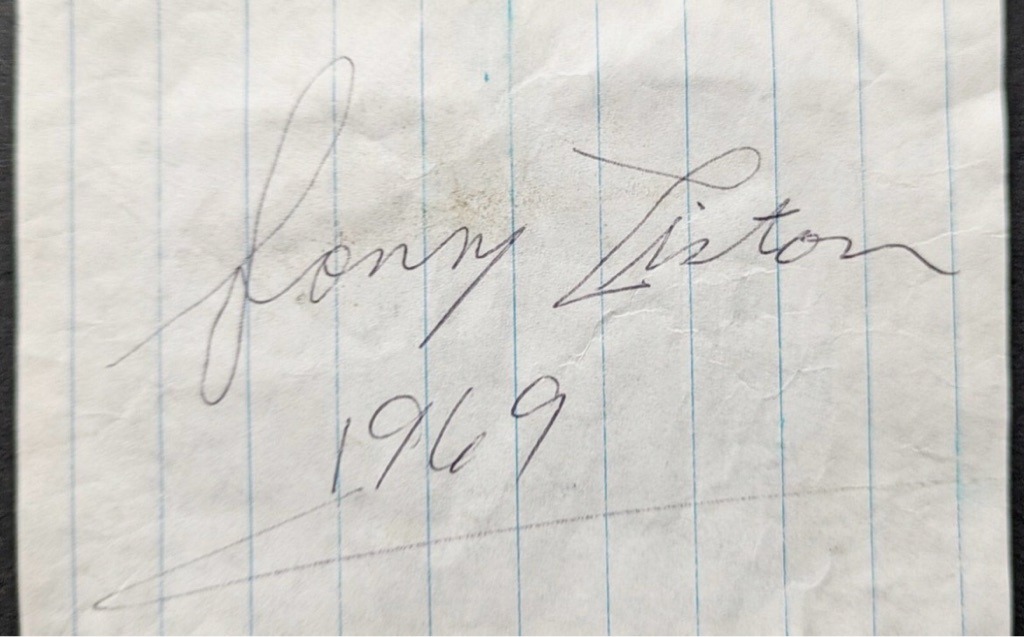 Sonny Liston
1969